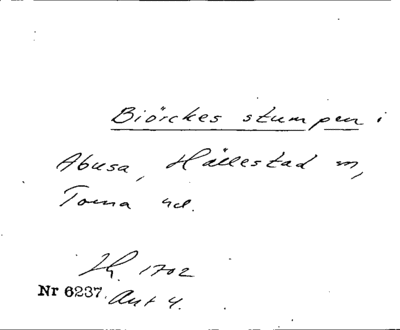 Biörckes stumpen i
Abusa, Hällestad sn,
Torna hd.
Jb. 1702
Nr 6237. Ant 4.